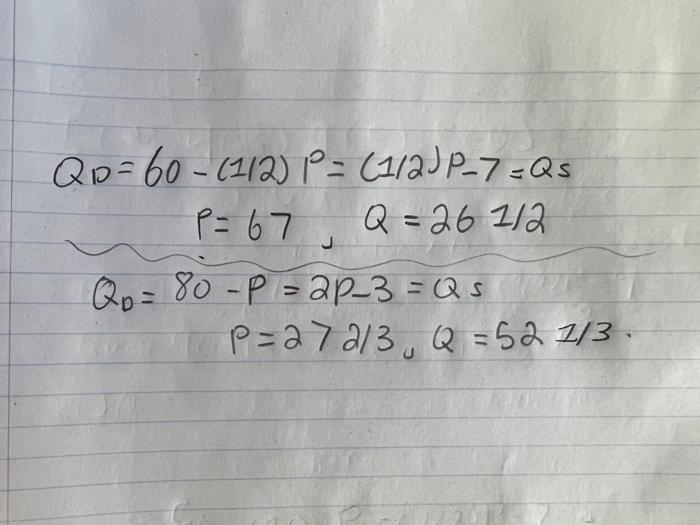 QD = 60 - (1/2) P = (1/2) P - 7 = QS
P = 67 , Q = 26 1/2
QD = 80 - P = 2P - 3 = QS
P = 27 2/3 , Q = 52 1/3 .